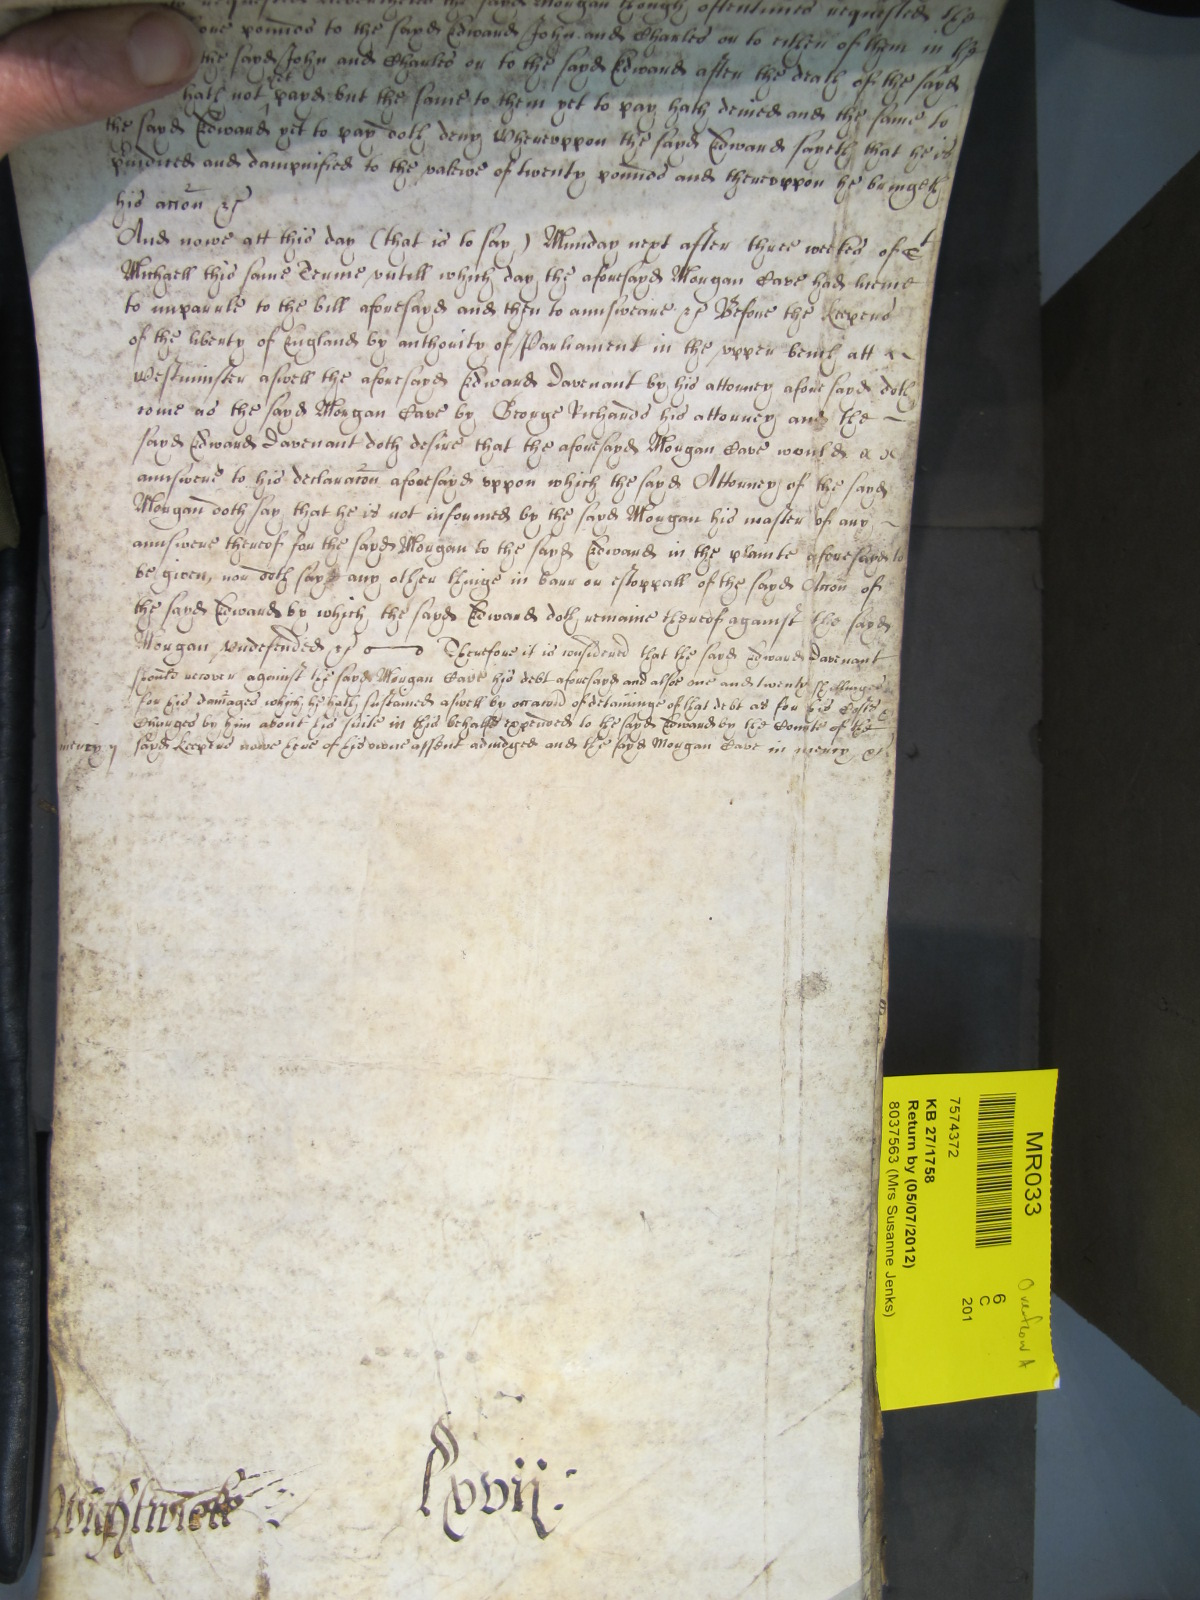 requested Neverthelesse the sayd Morgan though oftentimes requested the
pounds to the sayd Edward John and Charles or to either of them in the
the sayd John and Charles or to the sayd Edward after the death of the sayd
hath not yet payd but the same to them yet to pay hath denied and the same to
the sayd Edward yet to pay doth deny Whereuppon the sayd Edward sayeth that he is
and dampnified to the valewe of twenty pounds and thereuppon he bringeth
his accon &c
And nowe att this day (that is to say) Munday next after three weekes of St
Michaell this same Terme untill which day the aforesayd Morgan Cave had licence
to imparle to the bill aforesayd and then to annsweare &c Before the Keepers
of the liberty of England by authority of Parliament in the upper bench att
Westminster aswell the aforesayd Edward Davenant by his attorney aforesayd doth
come as the sayd Morgan Cave by George Richards his attorney and the
sayd Edward Davenant doth desire that the aforesayd Morgan Cave would
annswere to his declaracon aforesayd uppon which the sayd Attorney of the sayd
Morgan doth say that he is not informed by the sayd Morgan his master of any
annswere thereof for the sayd Morgan to the sayd Edward in the plainte aforesayd to
be given, nor doth say any other thinge in barr or estoppall of the sayd Accon of
the sayd Edward by which the sayd Edward doth remaine thereof against the sayd
Morgan undefended &c Therefore it is considered that the sayd Edward Davenant
should recover against the sayd Morgan Cave his debt aforesayd and alsoe one and twenty shillings
for his damages which he hath susteined aswell by occacon of deteininge of that debt as for his Costs
Charges by him about his suite in this behalfe expended to the sayd Edward by the Courte of the
mercy sayd Keepers nowe here of his owne assent adiudged and the sayd Morgan Cave in mercy &c
Wightwick
lxvij
MR033
7574372
KB 27/1758
Return by (05/07/2012)
8037563 (Mrs Susanne Jenks)
6
C
201
Overflow A